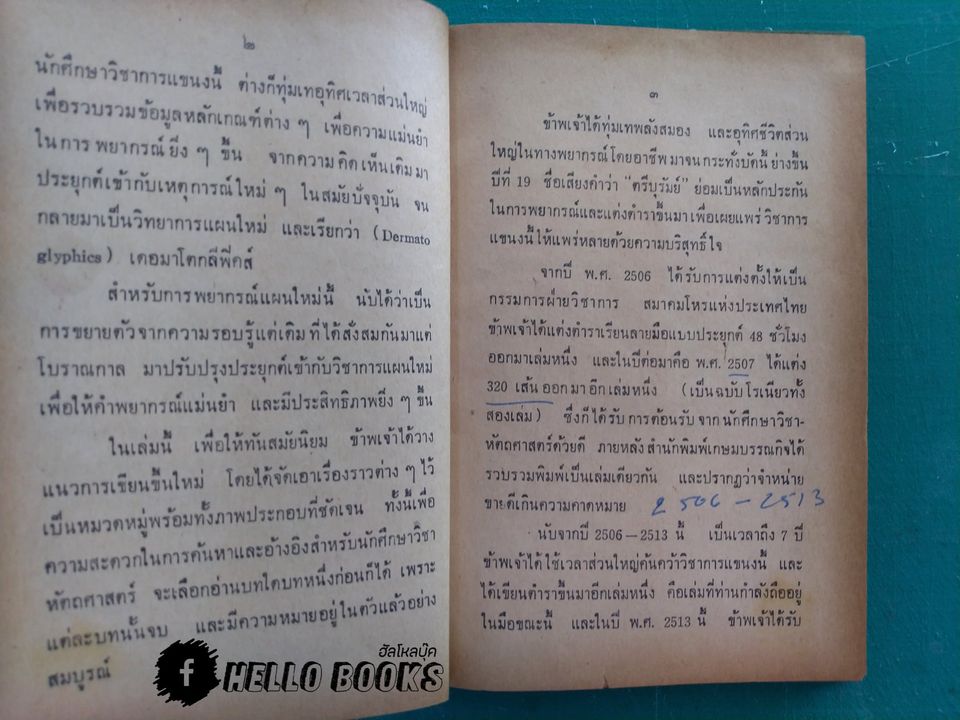 ๒
นักศึกษาวิชาการแขนงนี้ ต่างก็ทุ่มเทอุทิศเวลาส่วนใหญ่
เพื่อรวบรวมข้อมูลหลักเกณฑ์ต่าง ๆ เพื่อความแม่นยำ
ในการพยากรณ์ยิ่ง ๆ ขึ้น จากความคิดเห็นเดิมมา
ประยุกต์เข้ากับเหตุการณ์ใหม่ ๆ ในสมัยปัจจุบัน จน
กลายมาเป็นวิทยาการแผนใหม่ และเรียกว่า (Dermato
glyphics) เดอมาโตกลีฟี่คส์
สำหรับการพยากรณ์แผนใหม่นี้ นับได้ว่าเป็น
การขยายตัวจากความรอบรู้แต่เดิมที่ได้สั่งสมกันมาแต่
โบราณกาล มาปรับปรุงประยุกต์เข้ากับวิชาการแผนใหม่
เพื่อให้คำพยากรณ์แม่นยำ และมีประสิทธิภาพยิ่ง ๆ ขึ้น
ในเล่มนี้ เพื่อให้ทันสมัยนิยม ข้าพเจ้าได้วาง
แนวการเขียนขึ้นใหม่ โดยได้จัดเอาเรื่องราวต่าง ๆ ไว้
เป็นหมวดหมู่พร้อมทั้งภาพประกอบที่ชัดเจน ทั้งนี้เพื่อ
ความสะดวกในการค้นหาและอ้างอิงสำหรับนักศึกษาวิชา
หัตถศาสตร์ จะเลือกอ่านบทใดบทหนึ่งก่อนก็ได้ เพราะ
แต่ละบทนั้นจบ และมีความหมายอยู่ในตัวแล้วอย่าง
สมบูรณ์
ฮัลโหลบุ๊ค
f HELLO BOOKS
๓
ข้าพเจ้าได้ทุ่มเทพลังสมอง และอุทิศชีวิตส่วน
ใหญ่ในทางพยากรณ์โดยอาชีพมาจนกระทั่งบัดนี้ย่างขึ้น
ปีที่ 19 ชื่อเสียงคำว่า “ตรีบุรัมย์” ย่อมเป็นหลักประกัน
ในการพยากรณ์และแต่งตำราขึ้นมาเพื่อเผยแพร่วิชาการ
แขนงนี้ให้แพร่หลายด้วยความบริสุทธิ์ใจ
จากปี พ.ศ. 2506 ได้รับการแต่งตั้งให้เป็น
กรรมการฝ่ายวิชาการ สมาคมโหรแห่งประเทศไทย
ข้าพเจ้าได้แต่งตำราเรียนลายมือแบบประยุกต์ 48 ชั่วโมง
ออกมาเล่มหนึ่ง และในปีต่อมาคือ พ.ศ. 2507 ได้แต่ง
320 เส้น ออกมาอีกเล่มหนึ่ง (เป็นฉบับโรเนียวทั้ง
สองเล่ม) ซึ่งก็ได้รับการต้อนรับจากนักศึกษาวิชา-
หัตถศาสตร์ด้วยดี ภายหลังสำนักพิมพ์เกษมบรรณกิจได้
รวบรวมพิมพ์เป็นเล่มเดียวกัน และปรากฏว่าจำหน่าย
ขายดีเกินความคาดหมาย 2506 – 2513
นับจากปี 2506–2513 นี้ เป็นเวลาถึง 7 ปี
ข้าพเจ้าได้ใช้เวลาส่วนใหญ่ค้นคว้าวิชาการแขนงนี้ และ
ได้เขียนตำราขึ้นมาอีกเล่มหนึ่ง คือเล่มที่ท่านกำลังถืออยู่
ในมือขณะนี้ และในปี พ.ศ. 2513 นี้ ข้าพเจ้าได้รับ